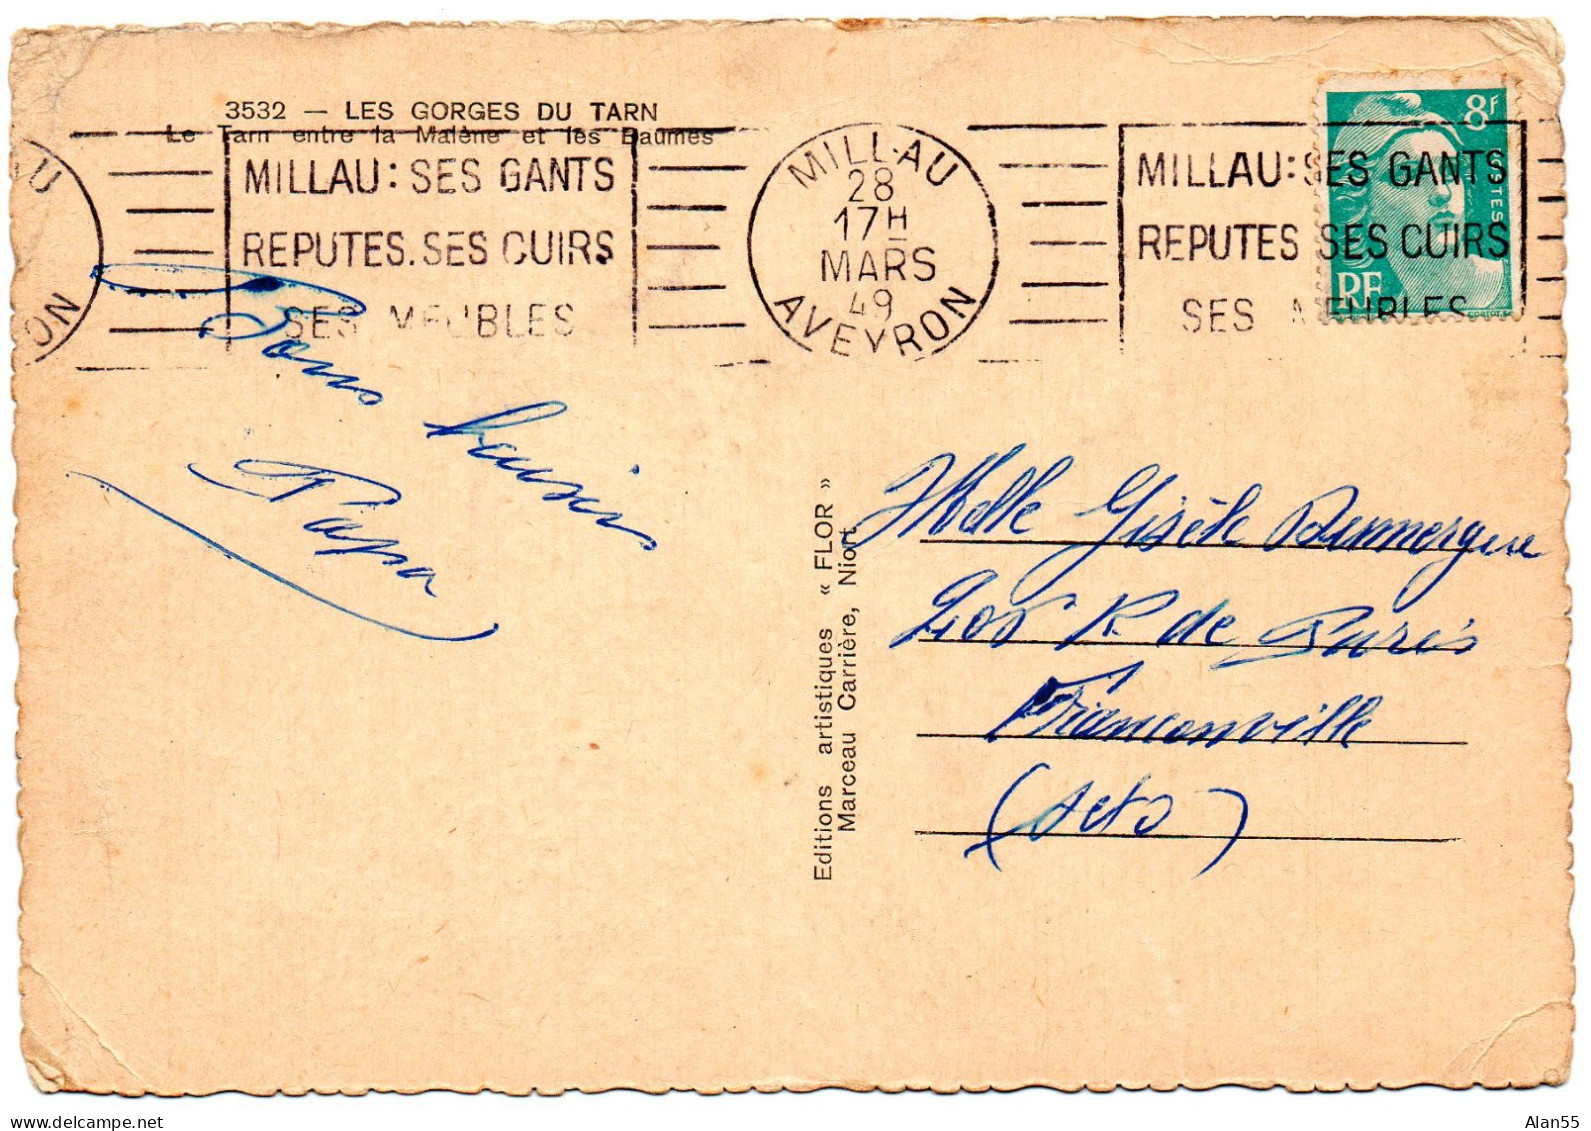 3532 — LES GORGES DU TARN
Le Tarn entre la Malène et les Baumes
MILLAU: SES GANTS
REPUTES. SES CUIRS
SES MEUBLES
MILLAU
28
17 H
MARS
49
AVEYRON
MILLAU: SES GANTS
REPUTES SES CUIRS
SES MEUBLES
8F
POSTES
RF
Bons baisers
Papa
Editions artistiques « FLOR »
Marceau Carrière, Niort
Melle Gisèle Dumergue
R de Paris
Franconville
(S et O)
www.delcampe.net
Alan55